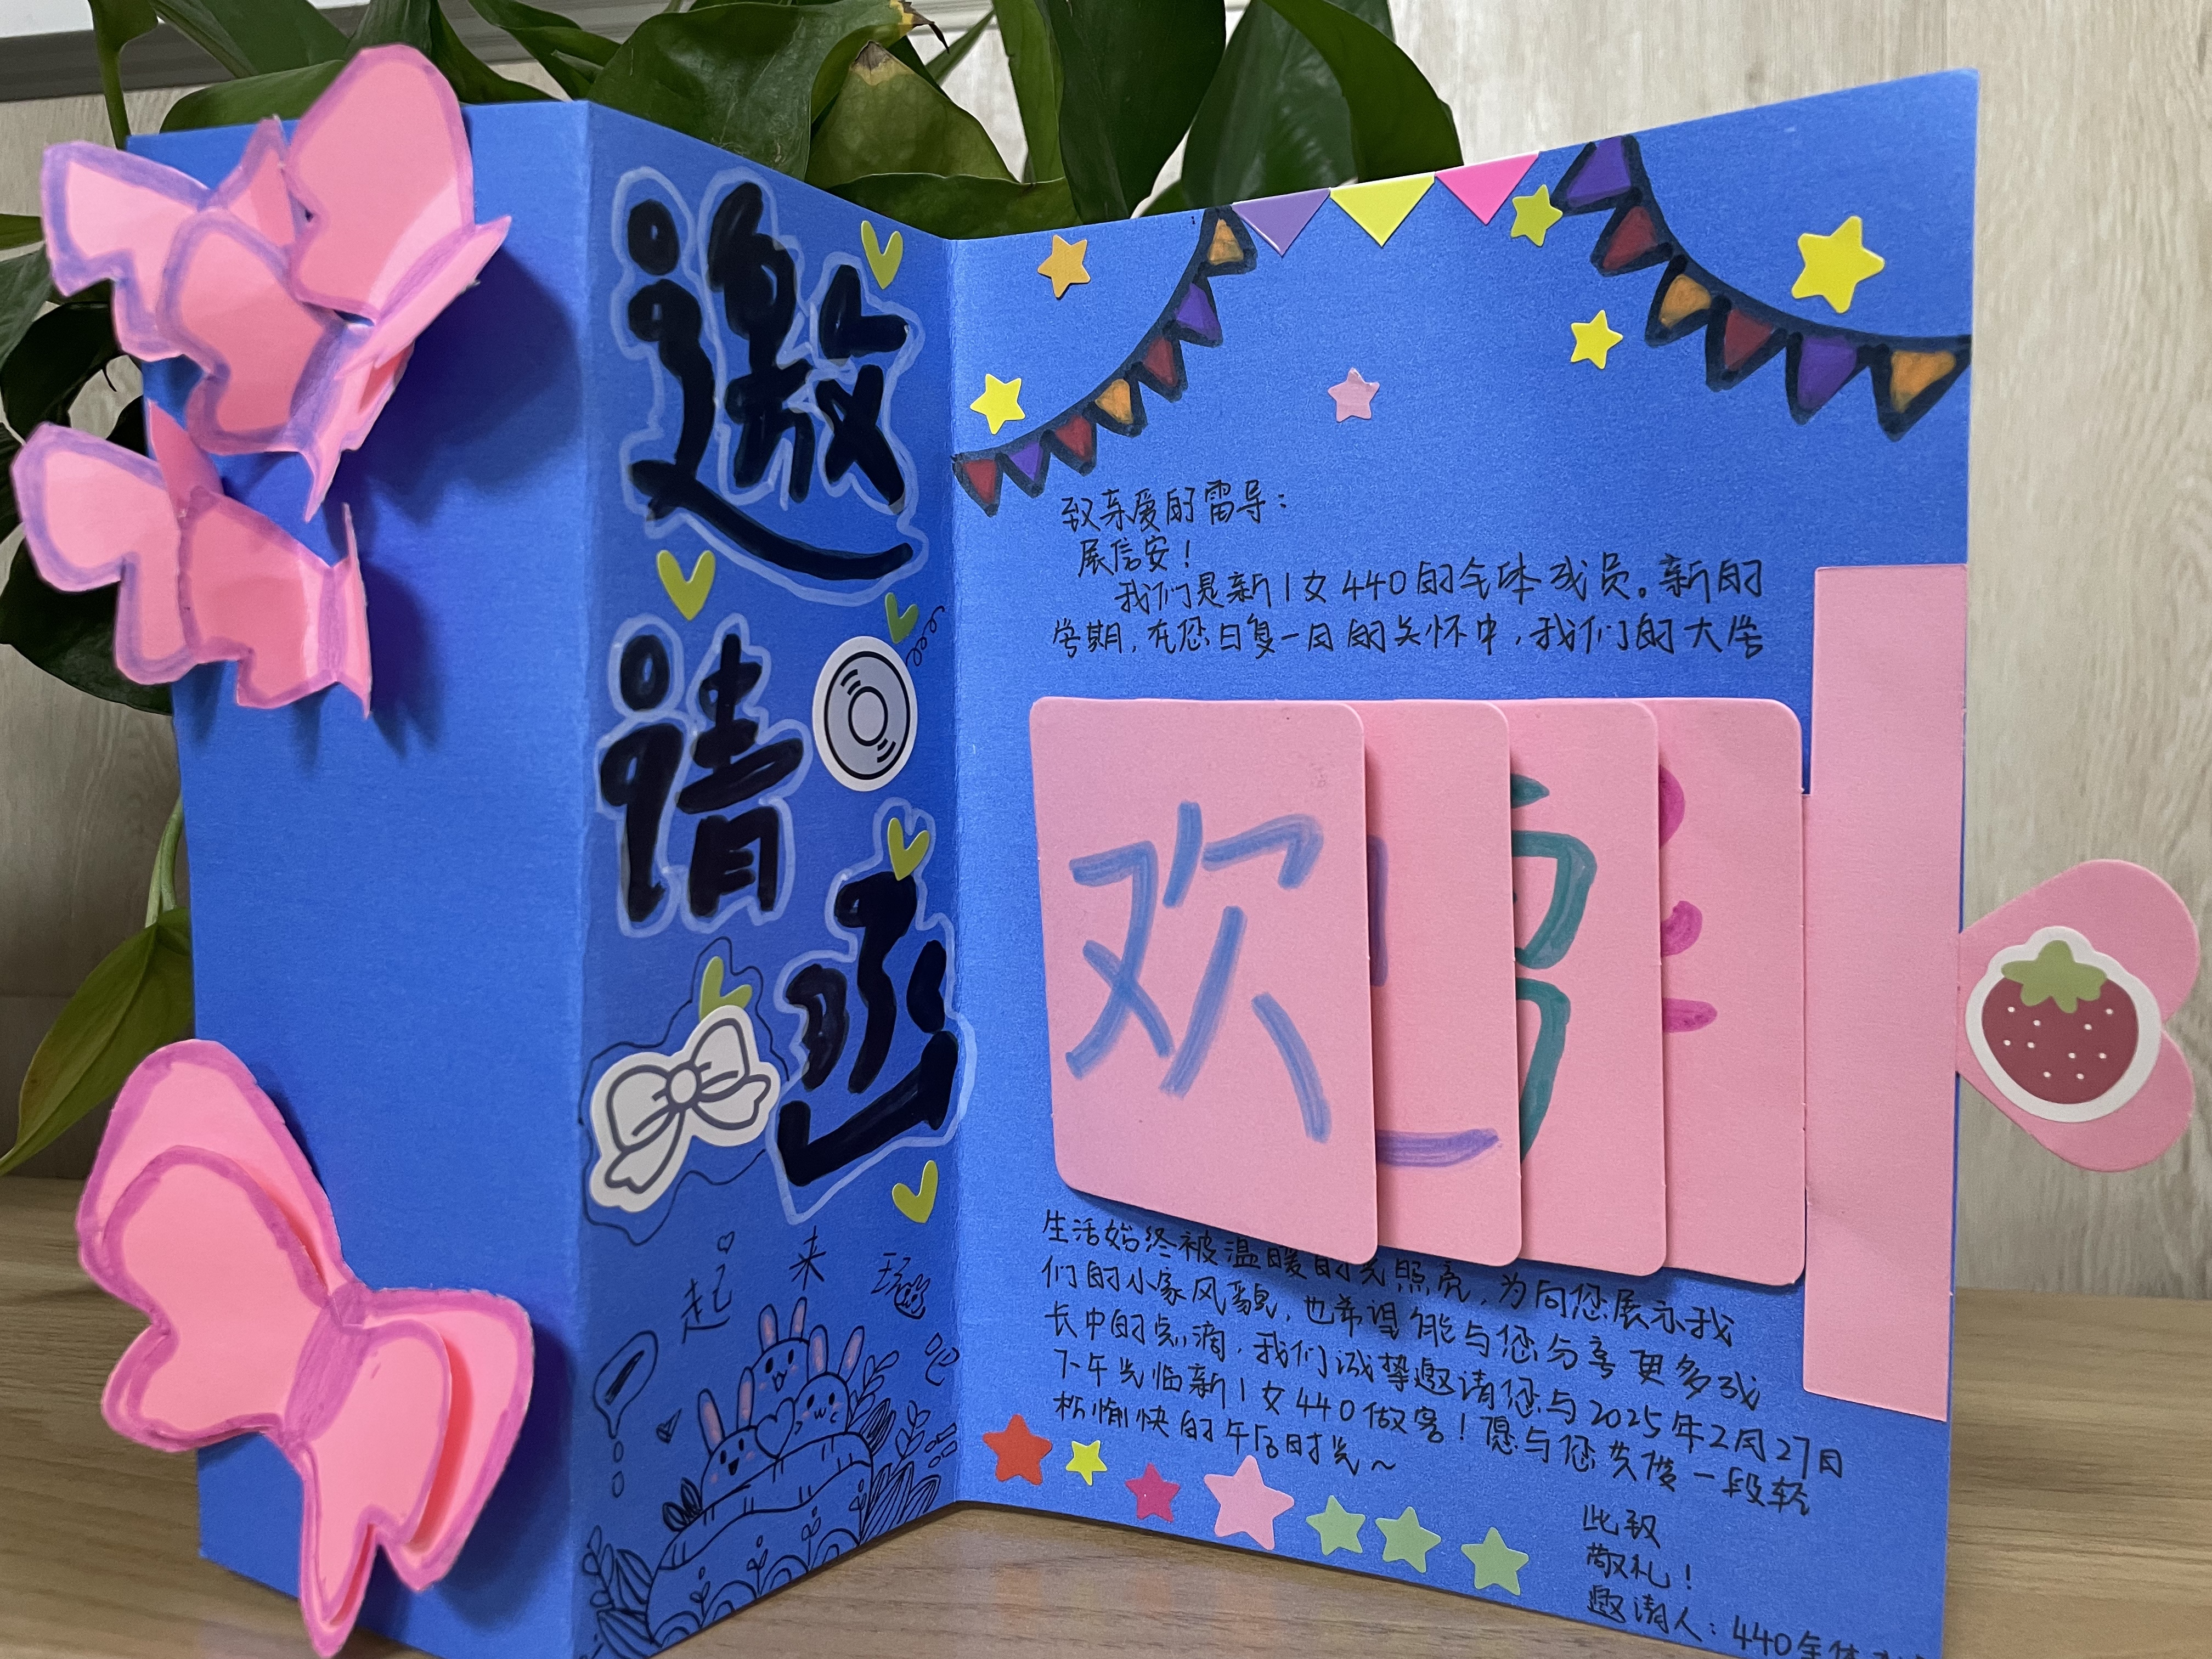 邀
请
函
起来玩吧
致亲爱的雷导：
展信安！
我们是新1女440的全体成员。新的
学期，在您日复一日的关怀中，我们的大学
欢
生活始终被温暖的光照亮，为向您展示我
们的小家风貌，也希望能与您分享更多成
长中的点滴，我们诚挚邀请您与2025年2月27日
下午光临新1女440做客！愿与您共度一段轻
松愉快的午后时光～
此致
敬礼！
邀请人：440全体